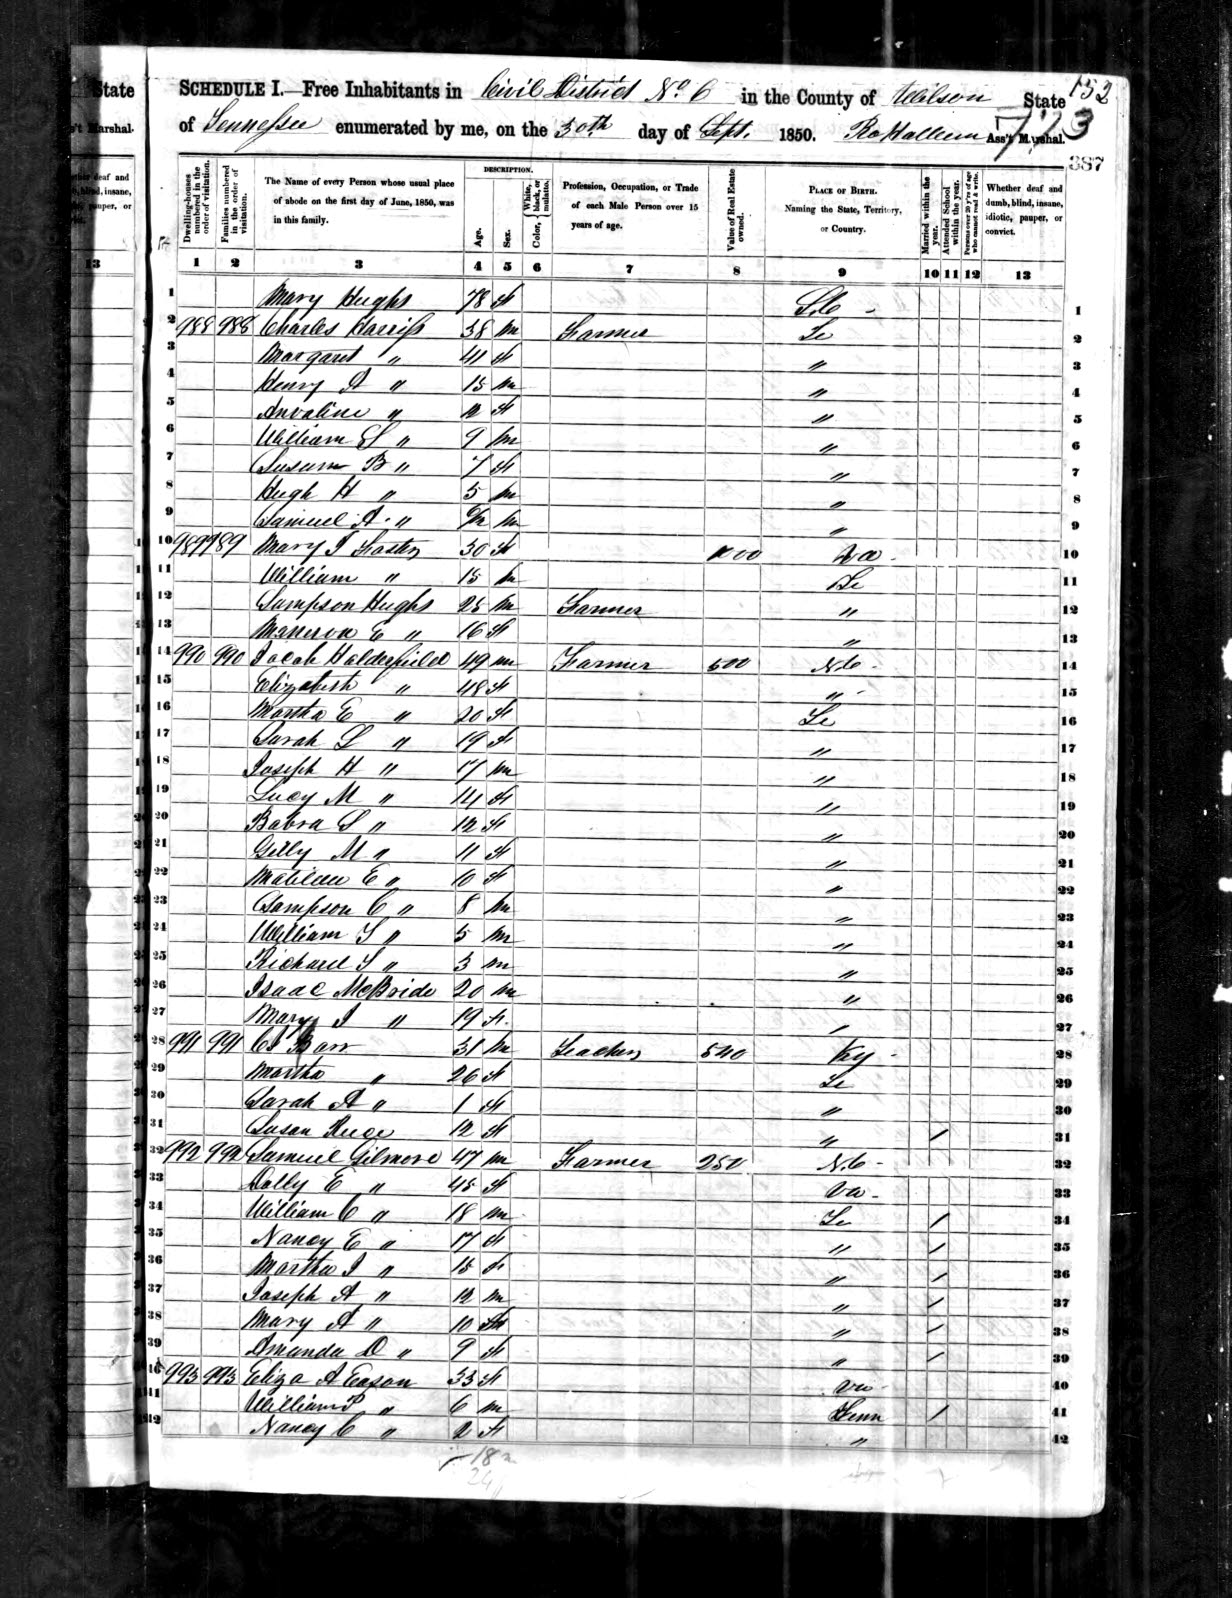 State
152
SCHEDULE I.—Free Inhabitants in Civil District No 6 in the County of Wilson State
723
of Tennessee enumerated by me, on the 30th day of Sept. 1850. Ass't Marshal.
's't Marshal.
387
DESCRIPTION.
Dwelling-houses numbered in the order of visitation.
Families numbered in the order of visitation.
The Name of every Person whose usual place of abode on the first day of June, 1850, was in this family.
Age.
Sex.
Color, White, black, or mulatto.
Profession, Occupation, or Trade of each Male Person over 15 years of age.
Value of Real Estate owned.
PLACE OF BIRTH. Naming the State, Territory, or Country.
Married within the year.
Attended School within the year.
Persons over 20 y'rs of age who cannot read & write.
Whether deaf and dumb, blind, insane, idiotic, pauper, or convict.
13 1 2 3 4 5 6 7 8 9 10 11 12 13
1 Mary Hughs 78 f S.C - 1
2 988 988 Charles Harriss 38 m Farmer Te 2
3 Margaret " 41 f " 3
4 Henry A " 15 m " 4
5 Anvaline " 12 f " 5
6 William S " 9 m " 6
7 Susan B " 7 f " 7
8 Hugh H " 5 m " 8
9 Samuel A " m " 9
10 989 989 Mary J Foster 30 f 1000 Va - 10
11 William " 15 m Te 11
12 Sampson Hughs 25 m Farmer " 12
13 E " 16 f " 13
14 990 990 Jacob Holderfield 49 m Farmer 500 N.C - 14
15 Elizabeth " 48 f " 15
16 Martha E " 20 f Te 16
17 Sarah L " 19 f " 17
18 Joseph H " 17 m " 18
19 Lucy M " 14 f " 19
20 Babra S " 12 f " 20
21 Gilly M " 11 f " 21
22 Matilda E " 10 f " 22
23 Sampson C " 8 m " 23
24 William T " 5 m " 24
25 Richard S " 3 m " 25
26 Isaac McBride 20 m " 26
27 Mary J " 19 f " 27
28 991 991 C J Barr 31 m Teacher 500 Ky - 28
29 Martha " 26 f Te 29
30 Sarah A " 1 f " 30
31 Susan 12 f " / 31
32 992 992 Samuel Gilmore 47 m Farmer 250 N.C - 32
33 Dolly E " 45 f Va - 33
34 William C " 18 m Te / 34
35 Nancy E " 17 f " / 35
36 Martha J " 15 f " / 36
37 Joseph A " 12 m " / 37
38 Mary A " 10 f " / 38
39 Amanda D " 9 f " / 39
40 993 993 Eliza A Eason 33 f Va - 40
41 William P " 6 m Tenn / 41
42 Nancy C " 2 f " 42
18 m
24